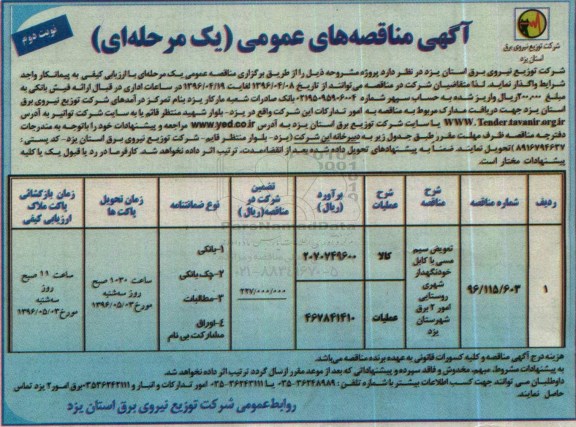 نوبت دوم
آگهی مناقصه‌های عمومی (یک مرحله‌ای)
شرکت توزیع نیروی برق
استان یزد
شرکت توزیع نیروی برق استان یزد در نظر دارد پروژه مشروحه ذیل را از طریق برگزاری مناقصه عمومی یک مرحله‌ای با ارزیابی کیفی به پیمانکار واجد
شرایط واگذار نماید. لذا متقاضیان شرکت در مناقصه می توانند از تاریخ ۱۳۹۶/۰۴/۰۸ لغایت ۱۳۹۶/۰۴/۱۹ در ساعات اداری در قبال ارائه فیش بانکی به
مبلغ ریال واریز شده به حساب سپهر شماره ۰۱۰۱۹۵۰۹۵۹۶۰۰۴ بانک صادرات شعبه مارکار یزد بنام تمرکز درآمدهای شرکت توزیع نیروی برق
استان یزد جهت دریافت مدارک مربوط به مناقصه به امور تدارکات این شرکت واقع در یزد- بلوار شهید منتظر قائم یا به سایت شرکت توانیر به آدرس
WWW.Tender.tavanir.org.ir یا سایت شرکت توزیع برق استان یزد به آدرس www.yed.co.ir مراجعه و پیشنهادات خود را با توجه به مندرجات
دفترچه مناقصه ظرف مهلت مقرر طبق جدول زیر به دبیرخانه این شرکت (یزد- بلوار منتظر قائم- شرکت توزیع نیروی برق استان یزد- کد پستی :
۸۹۱۶۷۹۴۶۳۷) تحویل نمایند. ضمناً به پیشنهادهای تحویل داده شده بعد از انقضاء مدت، ترتیب اثر داده نخواهد شد. کارفرما در رد یا قبول یک یا کلیه
پیشنهادات مختار است.
ردیف | شماره مناقصه | شرح مناقصه | شرح عملیات | برآورد (ریال) | تضمین شرکت در مناقصه(ریال) | نوع ضمانتنامه | زمان تحویل پاکت ها | زمان بازگشائی پاکت ملاک ارزیابی کیفی
۱ | ۹۶/۱۱۵/۶۰۳ | تعویض سیم مسی با کابل خودنگهدار شهری روستایی امور ۲ برق شهرستان یزد | کالا | ۲۰۷۰۷۴۹۶۰۰ | ۲۲۷/۰۰۰/۰۰۰ | ۱-بانکی ۲-چک بانکی ۳-مطالبات ۴-اوراق مشارکت بی نام | ساعت ۱۰:۳۰ صبح روز سه‌شنبه مورخ ۱۳۹۶/۰۵/۰۳ | ساعت ۱۱ صبح روز سه‌شنبه مورخ ۱۳۹۶/۰۵/۰۳
عملیات | ۴۶۷۸۴۱۴۱۰
هزینه درج آگهی مناقصه و کلیه کسورات قانونی به عهده برنده مناقصه می‌باشد.
به پیشنهادات مشروط، مبهم، مخدوش و فاقد سپرده و پیشنهاداتی که بعد از موعد مقرر ارسال گردد ترتیب اثر داده نخواهد شد.
داوطلبان می توانند، جهت کسب اطلاعات بیشتر با شماره تلفن : ۳۶۲۴۸۹۸۹-۰۳۵ یا ۳۶۲۴۳۱۱۱-۰۳۵ امور تدارکات و انبار و ۳۵۳۶۲۴۳۱۱۱ برق امور ۲ یزد تماس
حاصل نمایند.
روابط عمومی شرکت توزیع نیروی برق استان یزد